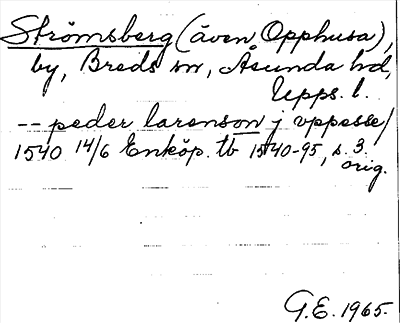 Strömsberg (även Opphusa),
by, Breds sn, Åsunda hd,
Upps. l.
-- peder larenson j vppesse/
1540 14/6 Enköp. tb 1540-95, s. 3.
orig.
G.E. 1965.